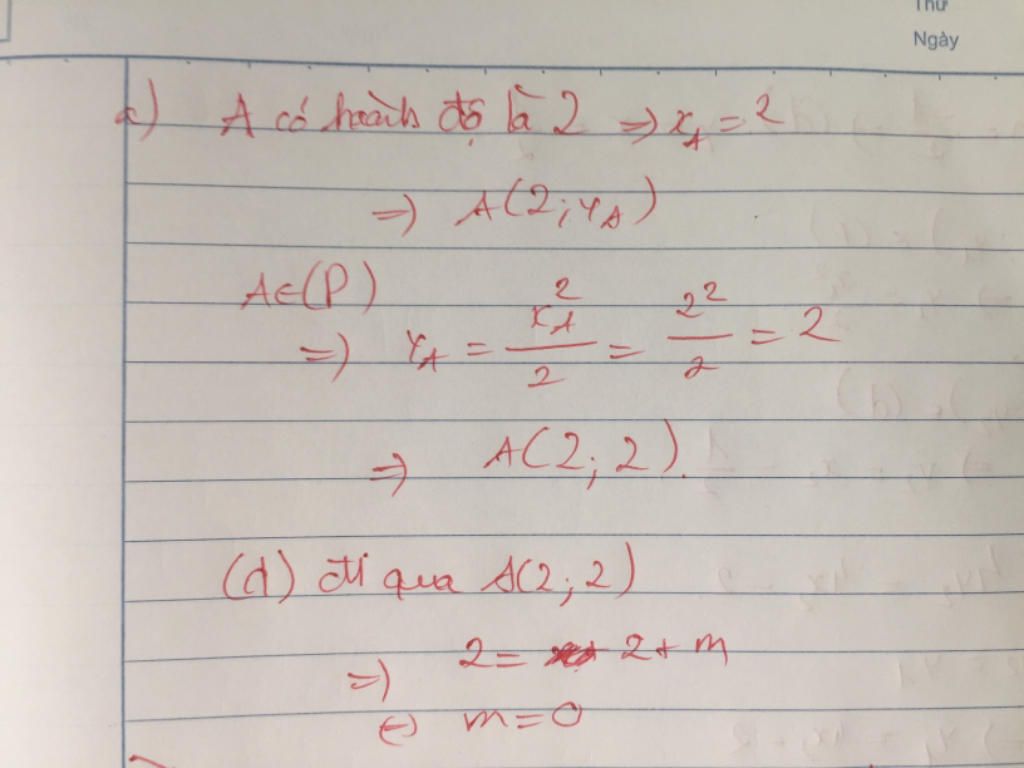 Thứ
Ngày
c) A có hoành độ là 2 => x_A = 2
=> A(2; y_A)
A∈(P)
=> y_A = x_A^2/2 = 2^2/2 = 2
=> A(2; 2).
(d) đi qua A(2; 2)
=> 2 = 2 + m
<=> m = 0